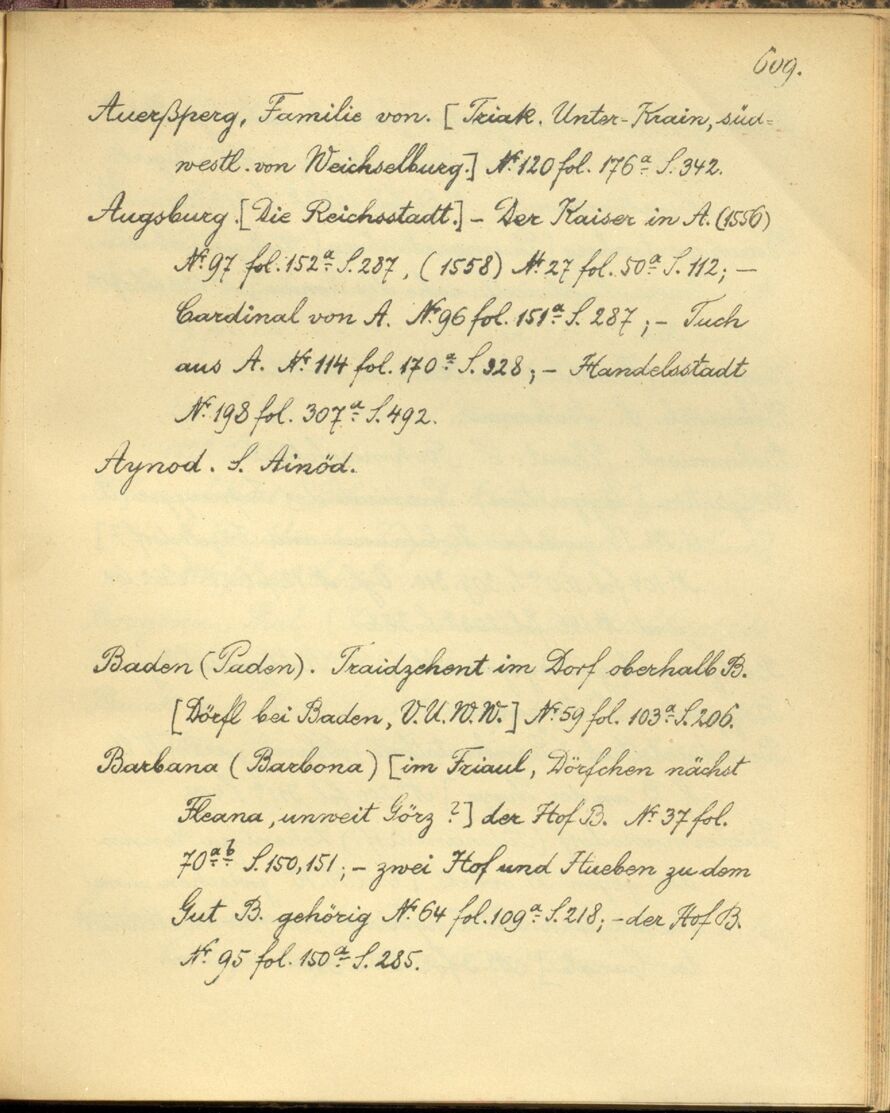 609.
Auerßperg, Familie von. [Triak. Unter-Krain, süd=
westl. von Weichselburg.] Nr. 120 fol. 176a S. 342.
Augsburg. [Die Reichsstadt.] – Der Kaiser in A. (1556)
Nr. 97 fol. 152a S. 287, (1558) Nr. 27 fol. 50a S. 112; –
Cardinal von A. Nr. 96 fol. 151a S. 287; – Tuch
aus A. Nr. 114 fol. 170a S. 328; – Handelsstadt
Nr. 198 fol. 307a S. 492.
Aynod. S. Ainöd.
Baden (Paden). Traidzehent im Dorf oberhalb B.
[Dörfl bei Baden, V.U.W.W.] Nr. 59 fol. 103a S. 206.
Barbana (Barbona) [im Friaul, Dörfchen nächst
Fleana, unweit Görz ?] der Hof B. Nr. 37 fol.
70a b S. 150, 151; – zwei Hof und Hueben zu dem
Gut B. gehörig Nr. 64 fol. 109a S. 218; – der Hof B.
Nr. 95 fol. 150a S. 285.